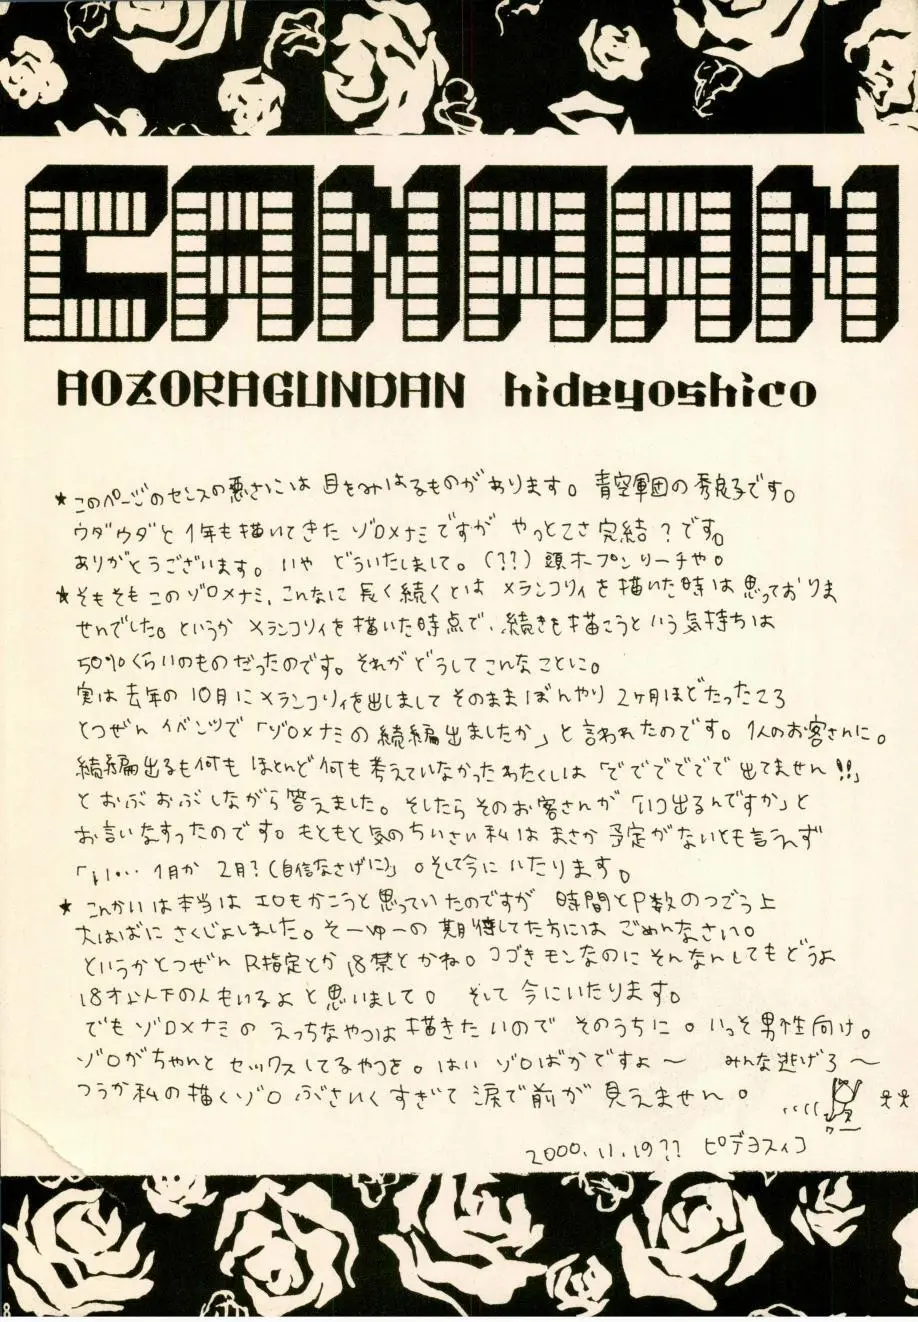 CANAAN
AOZORAGUNDAN hideyoshico
★このページのセンスの悪さには目をみはるものがあります。青空軍団の秀良子です。
ウダウダと1年も描いてきたゾロ×ナミですが やっとこさ完結?です。
ありがとうございます。いや どういたしまして。(??)頭ホープンリーチや。
★そもそもこのゾロ×ナミ、こんなに長く続くとは メランコリィを描いた時は思っておりま
せんでした。というかメランコリィを描いた時点で、続きを描こうという気持ちは
50%くらいのものだったのです。それがどうしてこんなことに。
実は去年の10月にメランコリィを出しましてそのままぼんやり2ヶ月ほどたったころ
とつぜんイベンツで「ゾロ×ナミの続編出ましたか」と言われたのです。1人のお客さんに。
続編出るも何も ほとんど何も考えていなかったわたくしは「でででででで出てません!!」
とおぶおぶしながら答えました。そしたらそのお客さんが「いつ出るんですか」と
お言いなすったのです。もともと気のちいさい私はまさか予定がないとも言えず
「い…1月か 2月?(自信なさげに)」。そして今にいたります。
★こんかいは本当はエロもかこうと思っていたのですが 時間とP数のつごう上
大はばにさくじょしました。そーゆーの期待してた方にはごめんなさい。
というかとつぜんR指定とか18禁とかね。コゴきモンなのにそんなんしてもどうよ
18才以下の人もいるよと思いまして。そして今にいたります。
でもゾロ×ナミのえっちなやつは描きたいのでそのうちに。いっそ男性向け。
ゾロがちゃんとセックスしてるやつを。はいゾロばかですよ〜 みんな逃げろ〜
つうか私の描くゾロぶさいくすぎて涙で前が見えません。
ワー
2000.11.19?? ピデヨスィコ
8